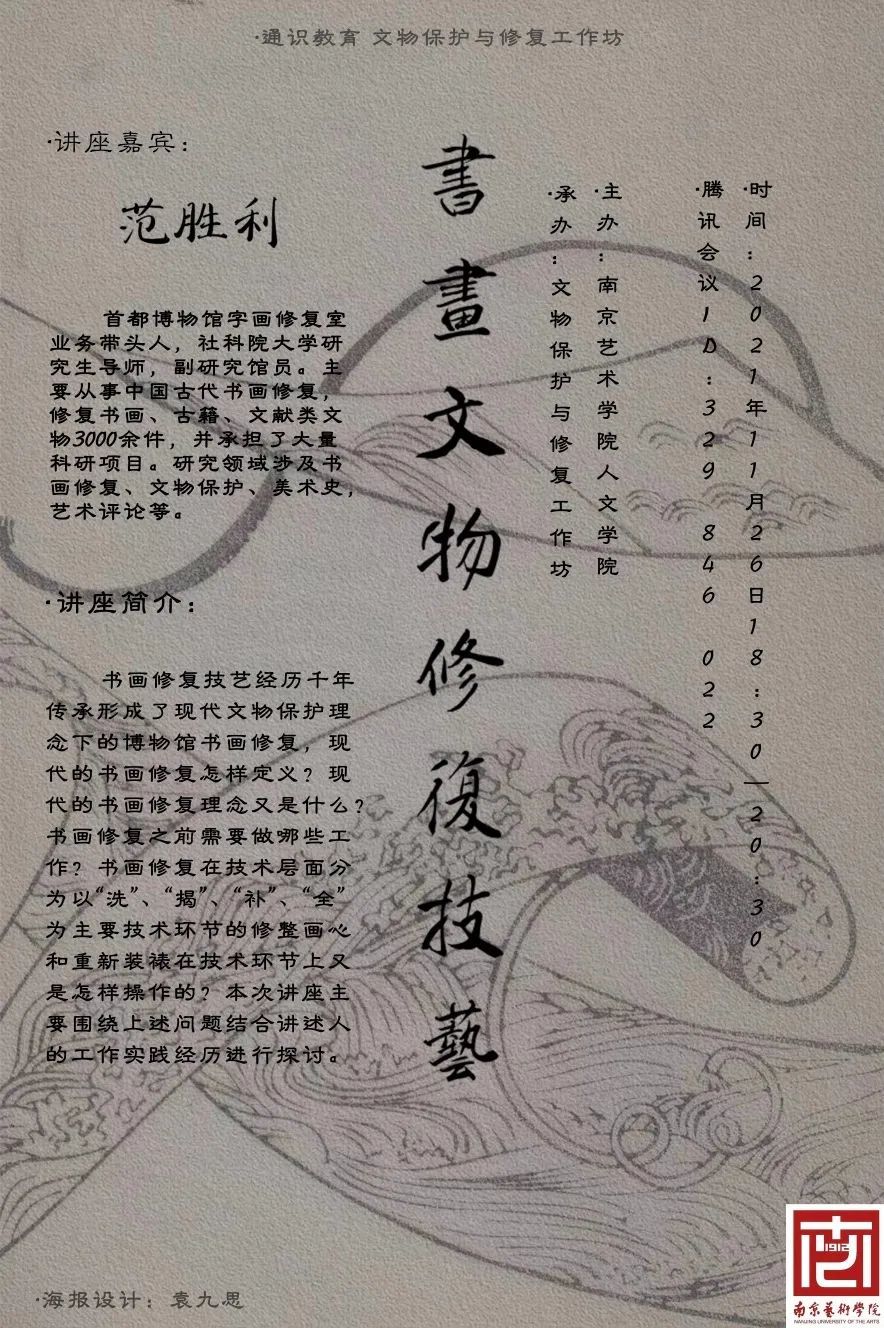 ·通识教育 文物保护与修复工作坊
·讲座嘉宾：
范胜利
首都博物馆字画修复室
业务带头人，社科院大学研
究生导师，副研究馆员。主
要从事中国古代书画修复，
修复书画、古籍、文献类文
物3000余件，并承担了大量
科研项目。研究领域涉及书
画修复、文物保护、美术史，
艺术评论等。
·讲座简介：
书画修复技艺经历千年
传承形成了现代文物保护理
念下的博物馆书画修复，现
代的书画修复怎样定义？现
代的书画修复理念又是什么？
书画修复之前需要做哪些工
作？书画修复在技术层面分
为以“洗”、“揭”、“补”、“全”
为主要技术环节的修整画心
和重新装裱在技术环节上又
是怎样操作的？本次讲座主
要围绕上述问题结合讲述人
的工作实践经历进行探讨。
書畫文物修復技藝
·时间：2021年11月26日18：30—20：30
·腾讯会议ID：329 846 022
·主办：南京艺术学院人文学院
·承办：文物保护与修复工作坊
·海报设计：袁九思
1912
南京藝術學院
NANJING UNIVERSITY OF THE ARTS